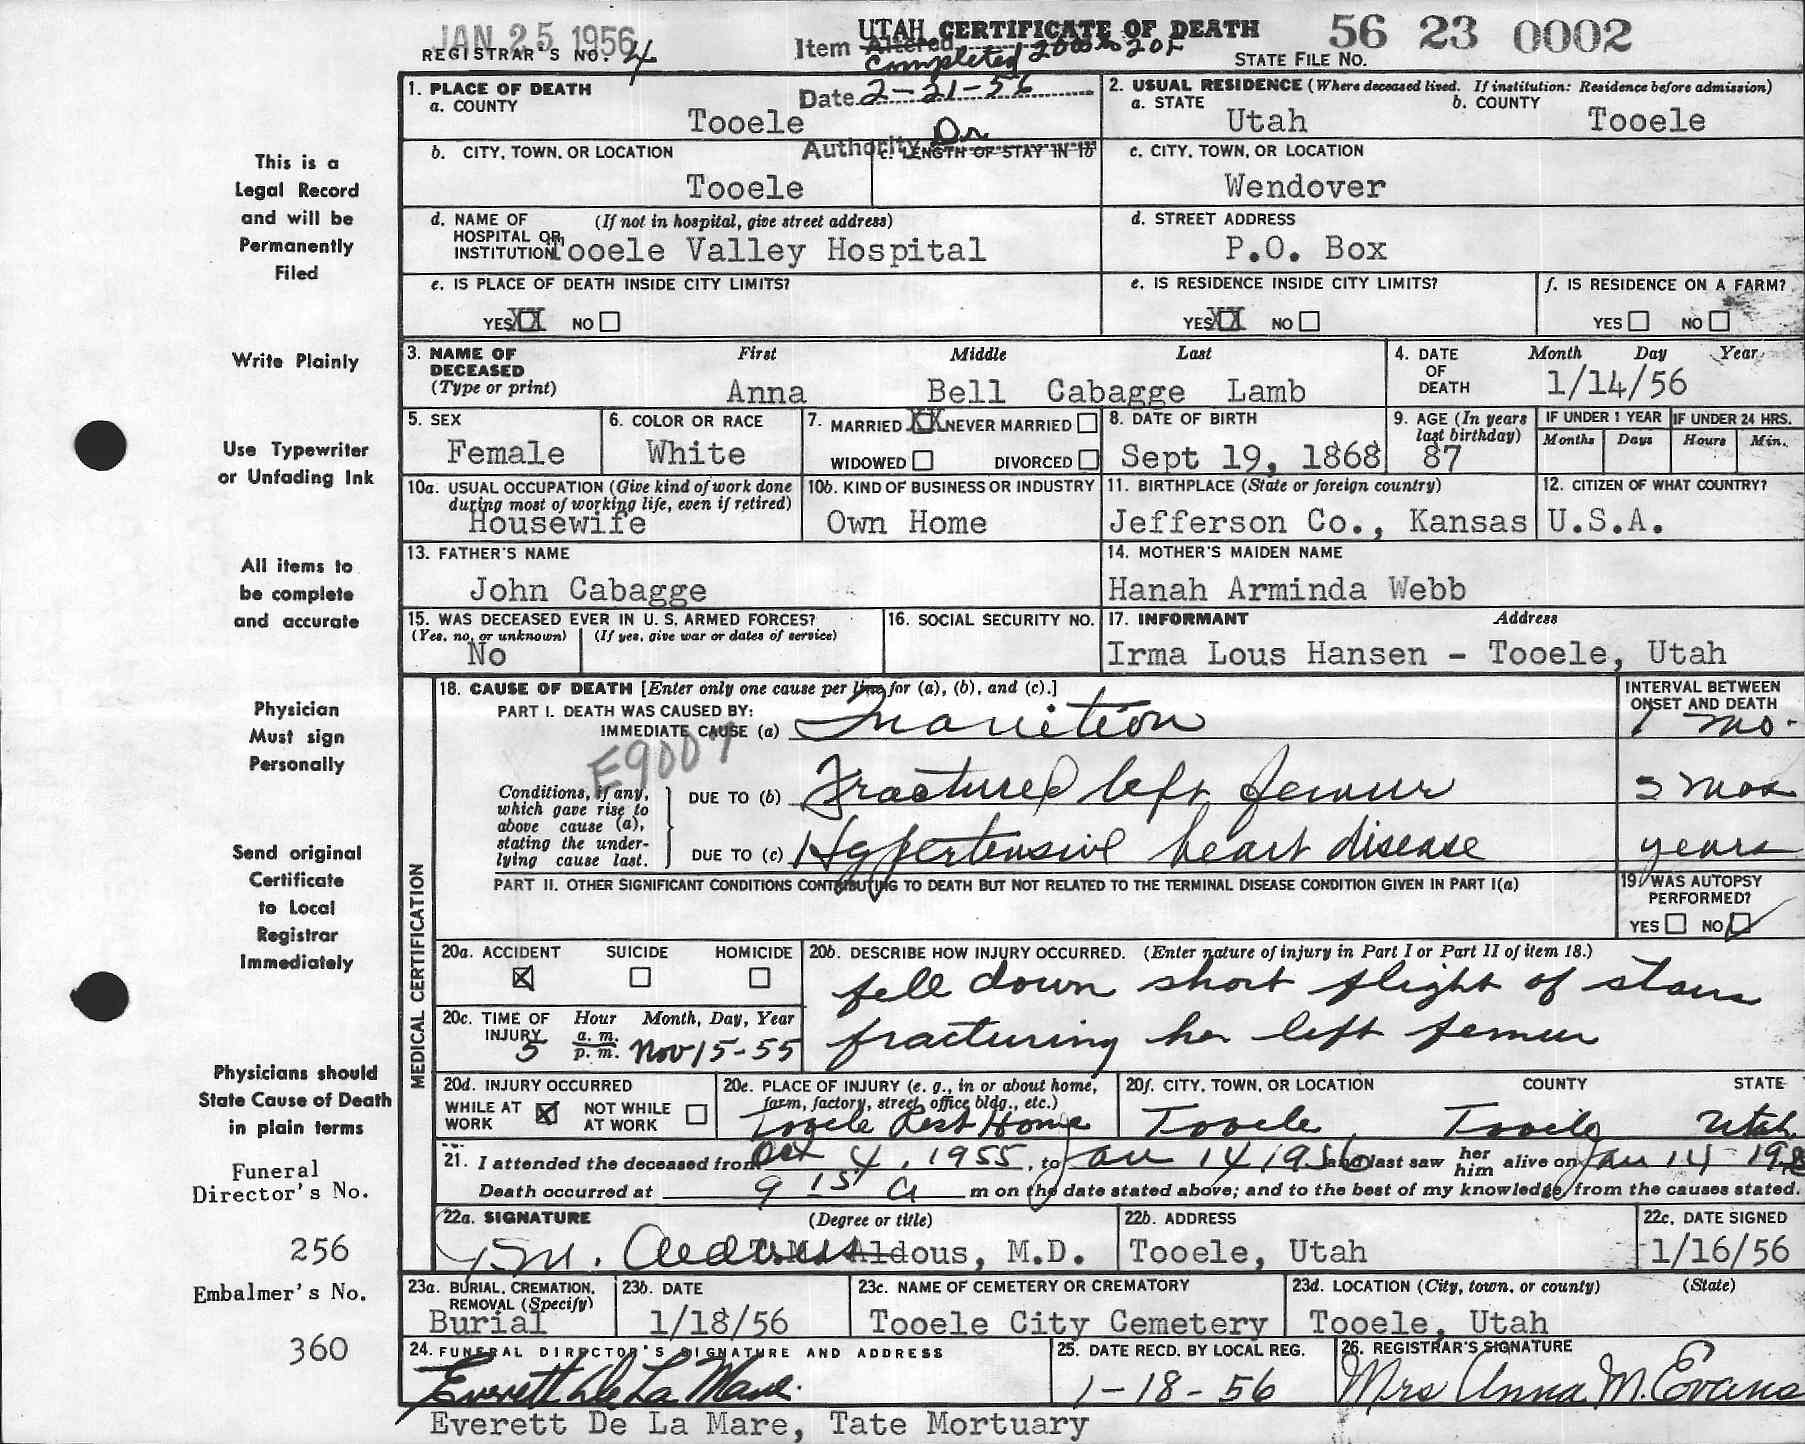 JAN 25 1956
REGISTRAR'S NO. 4
UTAH CERTIFICATE OF DEATH
Item Altered Completed 20a to 20f
Date 2-21-56
Authority Dr
56 23 0002
STATE FILE NO.
This is a
Legal Record
and will be
Permanently
Filed
Write Plainly
Use Typewriter
or Unfading Ink
All items to
be complete
and accurate
Physician
Must sign
Personally
Send original
Certificate
to Local
Registrar
Immediately
Physicians should
State Cause of Death
in plain terms
Funeral
Director's No.
256
Embalmer's No.
360
1. PLACE OF DEATH
a. COUNTY
Tooele
2. USUAL RESIDENCE (Where deceased lived. If institution: Residence before admission)
a. STATE b. COUNTY
Utah Tooele
b. CITY, TOWN, OR LOCATION
Tooele
c. LENGTH OF STAY IN 1b
c. CITY, TOWN, OR LOCATION
Wendover
d. NAME OF (If not in hospital, give street address)
HOSPITAL OR
INSTITUTION Tooele Valley Hospital
d. STREET ADDRESS
P.O. Box
e. IS PLACE OF DEATH INSIDE CITY LIMITS?
YES XX NO
e. IS RESIDENCE INSIDE CITY LIMITS?
YES XX NO
f. IS RESIDENCE ON A FARM?
YES NO
3. NAME OF DECEASED
(Type or print)
First Middle Last
Anna Bell Cabagge Lamb
4. DATE OF DEATH
Month Day Year
1/14/56
5. SEX
Female
6. COLOR OR RACE
White
7. MARRIED XX NEVER MARRIED
WIDOWED DIVORCED
8. DATE OF BIRTH
Sept 19, 1868
9. AGE (In years last birthday)
87
IF UNDER 1 YEAR
Months Days
IF UNDER 24 HRS.
Hours Min.
10a. USUAL OCCUPATION (Give kind of work done
during most of working life, even if retired)
Housewife
10b. KIND OF BUSINESS OR INDUSTRY
Own Home
11. BIRTHPLACE (State or foreign country)
Jefferson Co., Kansas
12. CITIZEN OF WHAT COUNTRY?
U.S.A.
13. FATHER'S NAME
John Cabagge
14. MOTHER'S MAIDEN NAME
Hanah Arminda Webb
15. WAS DECEASED EVER IN U. S. ARMED FORCES?
(Yes, no, or unknown) (If yes, give war or dates of service)
No
16. SOCIAL SECURITY NO.
17. INFORMANT Address
Irma Lous Hansen - Tooele, Utah
MEDICAL CERTIFICATION
18. CAUSE OF DEATH [Enter only one cause per line for (a), (b), and (c).]
INTERVAL BETWEEN
ONSET AND DEATH
PART I. DEATH WAS CAUSED BY:
IMMEDIATE CAUSE (a) Inanition 1 mo.
E9009
Conditions, if any,
which gave rise to
above cause (a),
stating the under-
lying cause last.
DUE TO (b) Fractured left femur mos
DUE TO (c) Hypertensive heart disease years
PART II. OTHER SIGNIFICANT CONDITIONS CONTRIBUTING TO DEATH BUT NOT RELATED TO THE TERMINAL DISEASE CONDITION GIVEN IN PART I(a)
19. WAS AUTOPSY
PERFORMED?
YES NO
20a. ACCIDENT SUICIDE HOMICIDE
20b. DESCRIBE HOW INJURY OCCURRED. (Enter nature of injury in Part I or Part II of item 18.)
fell down short flight of stairs
fracturing her left femur
20c. TIME OF INJURY Hour Month, Day, Year
5 a.m. p.m. Nov 15-55
20d. INJURY OCCURRED
WHILE AT WORK NOT WHILE AT WORK
20e. PLACE OF INJURY (e. g., in or about home,
farm, factory, street, office bldg., etc.)
Tooele Rest Home
20f. CITY, TOWN, OR LOCATION COUNTY STATE
Tooele Tooele Utah
21. I attended the deceased from Oct 4, 1955, to Jan 14 1956 and last saw her him alive on Jan 14 1956
Death occurred at 9 15 a m on the date stated above; and to the best of my knowledge, from the causes stated.
22a. SIGNATURE (Degree or title)
Aldous, M.D.
22b. ADDRESS
Tooele, Utah
22c. DATE SIGNED
1/16/56
23a. BURIAL, CREMATION,
REMOVAL (Specify)
Burial
23b. DATE
1/18/56
23c. NAME OF CEMETERY OR CREMATORY
Tooele City Cemetery
23d. LOCATION (City, town, or county) (State)
Tooele, Utah
24. FUNERAL DIRECTOR'S SIGNATURE AND ADDRESS
Everett De La Mare
Everett De La Mare, Tate Mortuary
25. DATE RECD. BY LOCAL REG.
1-18-56
26. REGISTRAR'S SIGNATURE
Mrs Anna M. Evans